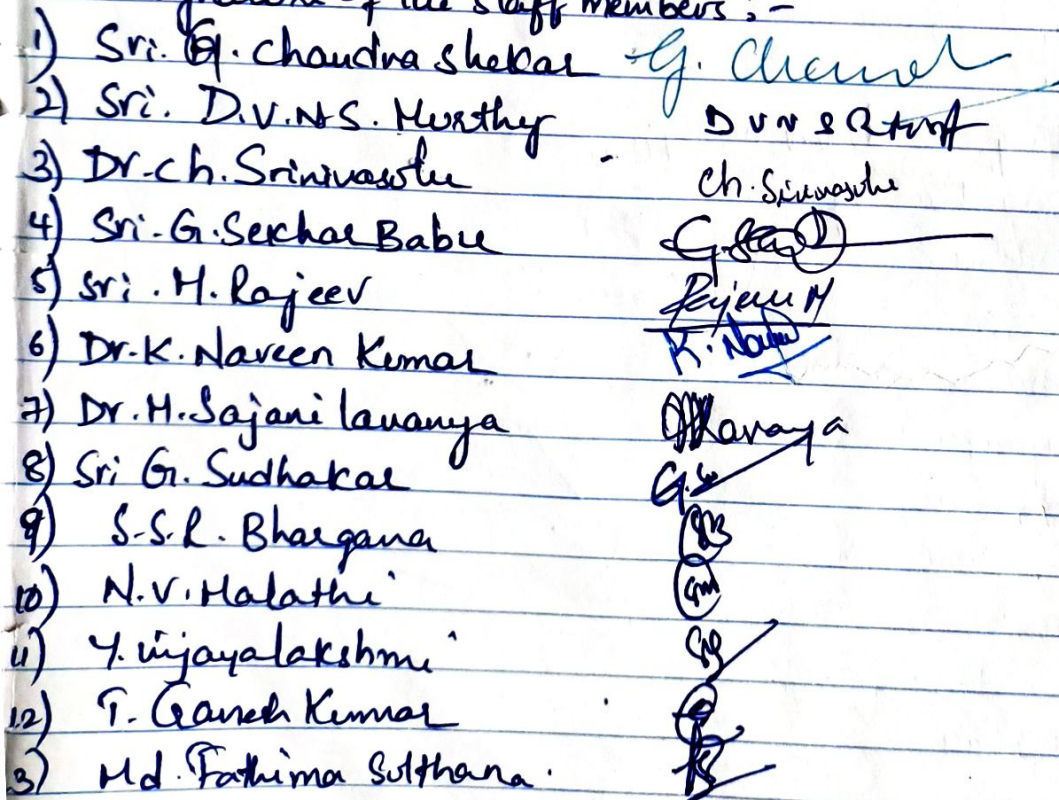 of the Staff Members :-
1) Sri. G. Chandra Shekar G. Chand
2) Sri. D.V.N.S. Murthy D V N S
3) Dr. Ch. Srinivasulu Ch. Srinivasulu
4) Sri. G. Sekhar Babu
5) Sri. M. Rajeev Rajeev M
6) Dr. K. Naveen Kumar K. Nav
7) Dr. M. Sajani lavanya Lavanya
8) Sri G. Sudhakar G. Su
9) S.S.R. Bhargava
10) N.V. Malathi
11) Y. Vijayalakshmi
12) T. Ganesh Kumar
3) Md. Fathima Sulthana.